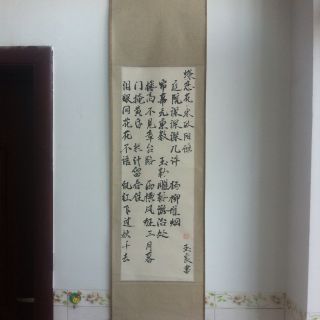 蝶恋花 宋 欧阳修
庭院深深深几许 杨柳堆烟
帘幕无重数 玉勒雕鞍游冶处
楼高不见章台路 雨横风狂三月暮
门掩黄昏 无计留春住
泪眼问花花不语 乱红飞过秋千去